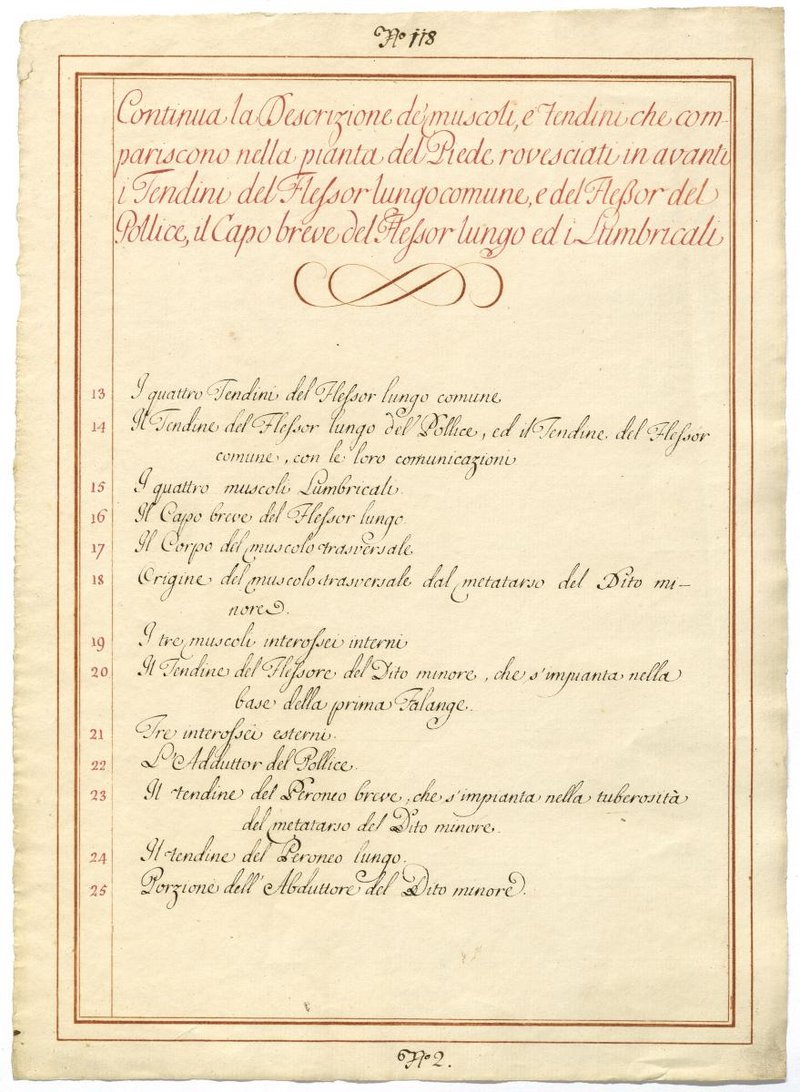 Nº 118
Continua la Descrizione de' muscoli, e Tendini che com-
pariscono nella pianta del Piede rovesciati in avanti
i Tendini del Fleſsor lungo comune, e del Fleßor del
Pollice, il Capo breve del Fleſsor lungo ed i Lumbricali
13 I quattro Tendini del Fleſsor lungo comune
14 Il Tendine del Fleſsor lungo del Pollice, ed il Tendine del Fleſsor
comune, con le loro comunicazioni
15 I quattro muscoli Lumbricali.
16 Il Capo breve del Fleſsor lungo
17 Il Corpo del muscolo trasversale
18 Origine del muscolo trasversale dal metatarso del Dito mi-
nore.
19 I tre muscoli interoſsei interni
20 Il Tendine del Fleſsore del Dito minore, che s'impianta nella
base della prima Falange.
21 Tre interoſsei esterni.
22 L'Adduttor del Pollice.
23 Il tendine del Peroneo breve, che s'impianta nella tuberosità
del metatarso del Dito minore.
24 Il tendine del Peroneo lungo.
25 Porzione dell'Abduttore del Dito minore.
Nº 2.